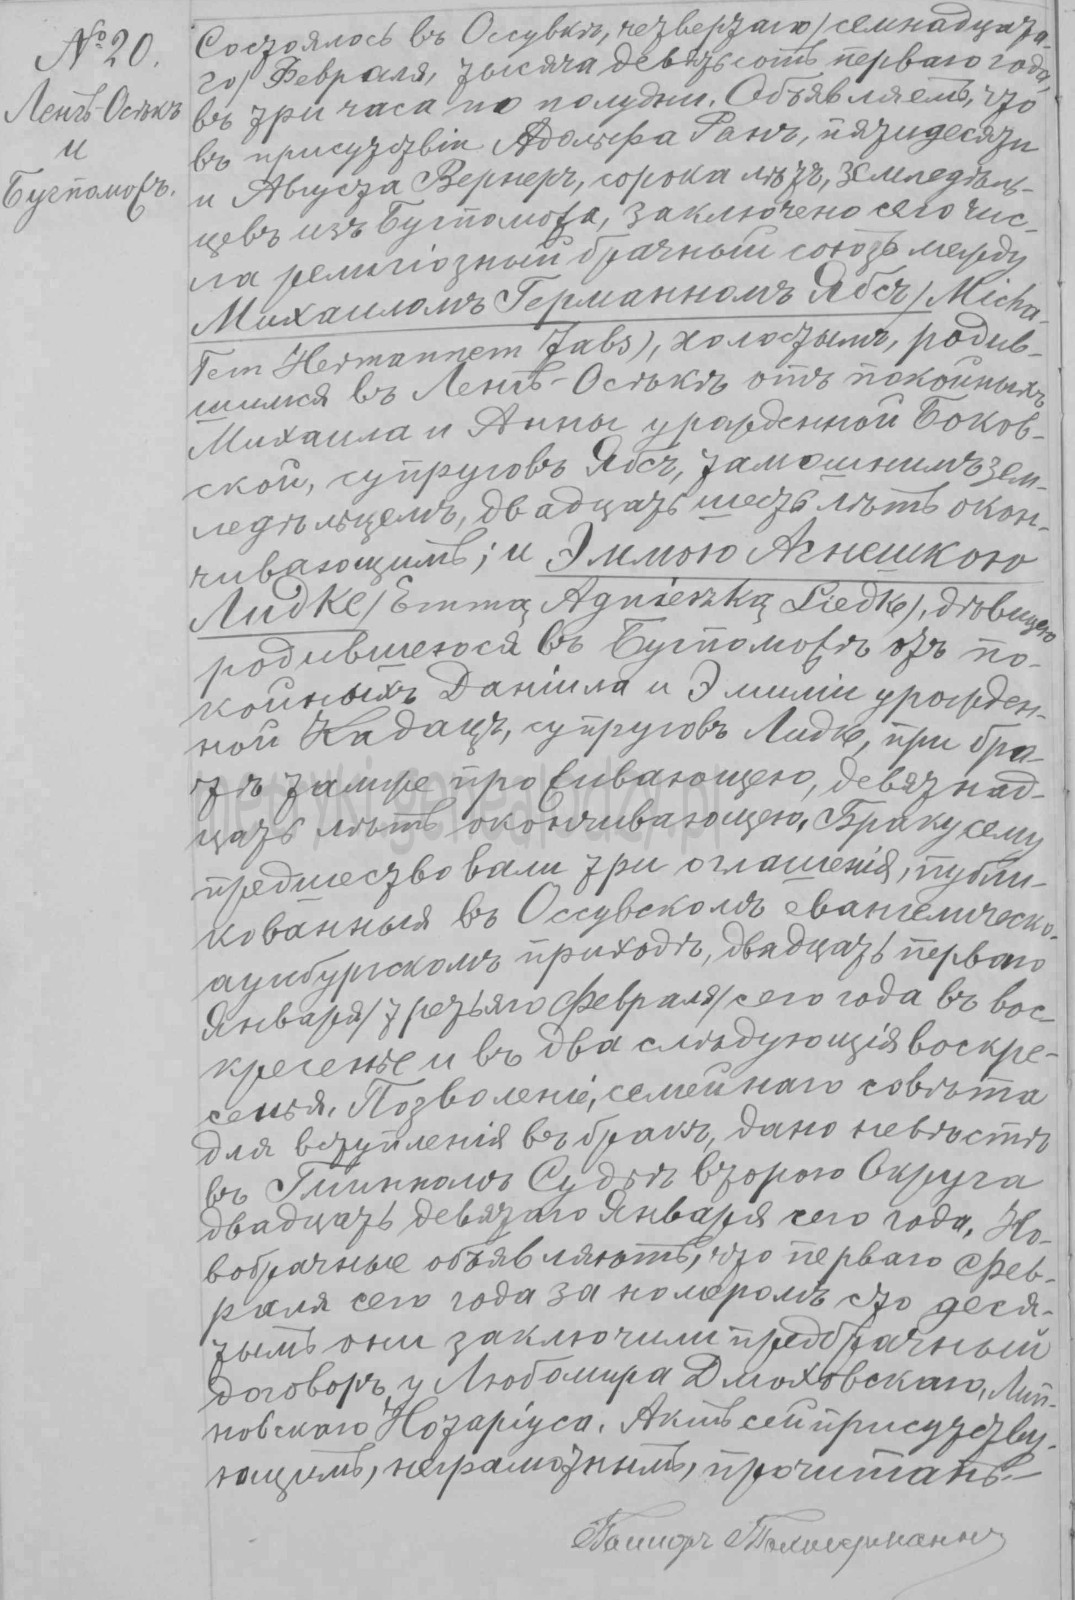 № 20.
Ленъ-Осѣкъ
и
Бугпомоѕъ.
Состоялось въ Оссувкѣ, четвертаго/семнадцата-
го/ Февраля, тысяча девятьсотъ перваго года,
въ три часа по полудни. Объявляемъ, что
въ присутствіи Адольфа Ранъ, пятидесяти
и Августа Вернеръ, сорока лѣтъ, земледѣль-
цевъ изъ, заключено сего чис-
ла религіозный брачный союзъ между
Михаиломъ Германномъ Ябсъ/Micha-
łem Hermannem Jabs), холостымъ, родив-
шимся въ Ленъ-Осѣкѣ отъ покойныхъ
Михаила и Анны урожденной Боков-
ской, супруговъ Ябсъ, тамошнимъ зем-
ледѣльцемъ, двадцать шесть лѣтъ окон-
чивающимъ; и Эммою Агнешкою
Лидке/Emmą Agnieszką Liedke/, дѣвицею
родившеюся въ отъ по-
койныхъ Даніила и Эмиліи урожден-
ной Кадацъ, супруговъ Лидке, при бра-
тѣ тамже проживающею, девятнад-
цать лѣтъ окончивающею. Браку сему
предшествовали три оглашенія, публи-
кованныя въ Оссувскомъ евангелическо-
аугсбургскомъ приходѣ, двадцать перваго
Января/третьяго Февраля/сего года въ вос-
кресенье и въ два слѣдующія воскре-
сенья. Позволеніе, семейнаго совѣта
для вступленія въ бракъ, дано невѣстѣ
въ Гминномъ Судѣ второго Округа
двадцать девятаго Января сего года. Но-
вобрачные объявляютъ, что перваго Фев-
раля сего года за номеромъ сто деся-
тымъ они заключили предбрачный
договоръ у Любомира Дмоховскаго, Лип-
новскаго Нотаріуса. Актъ сей присутству-
ющимъ, неграмотнымъ, прочитанъ.—
metryki.genealodzy.pl